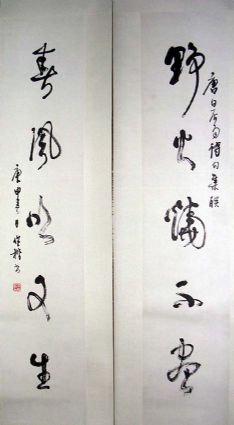 野火燒不盡
唐白居易詩句集聯
春風吹又生